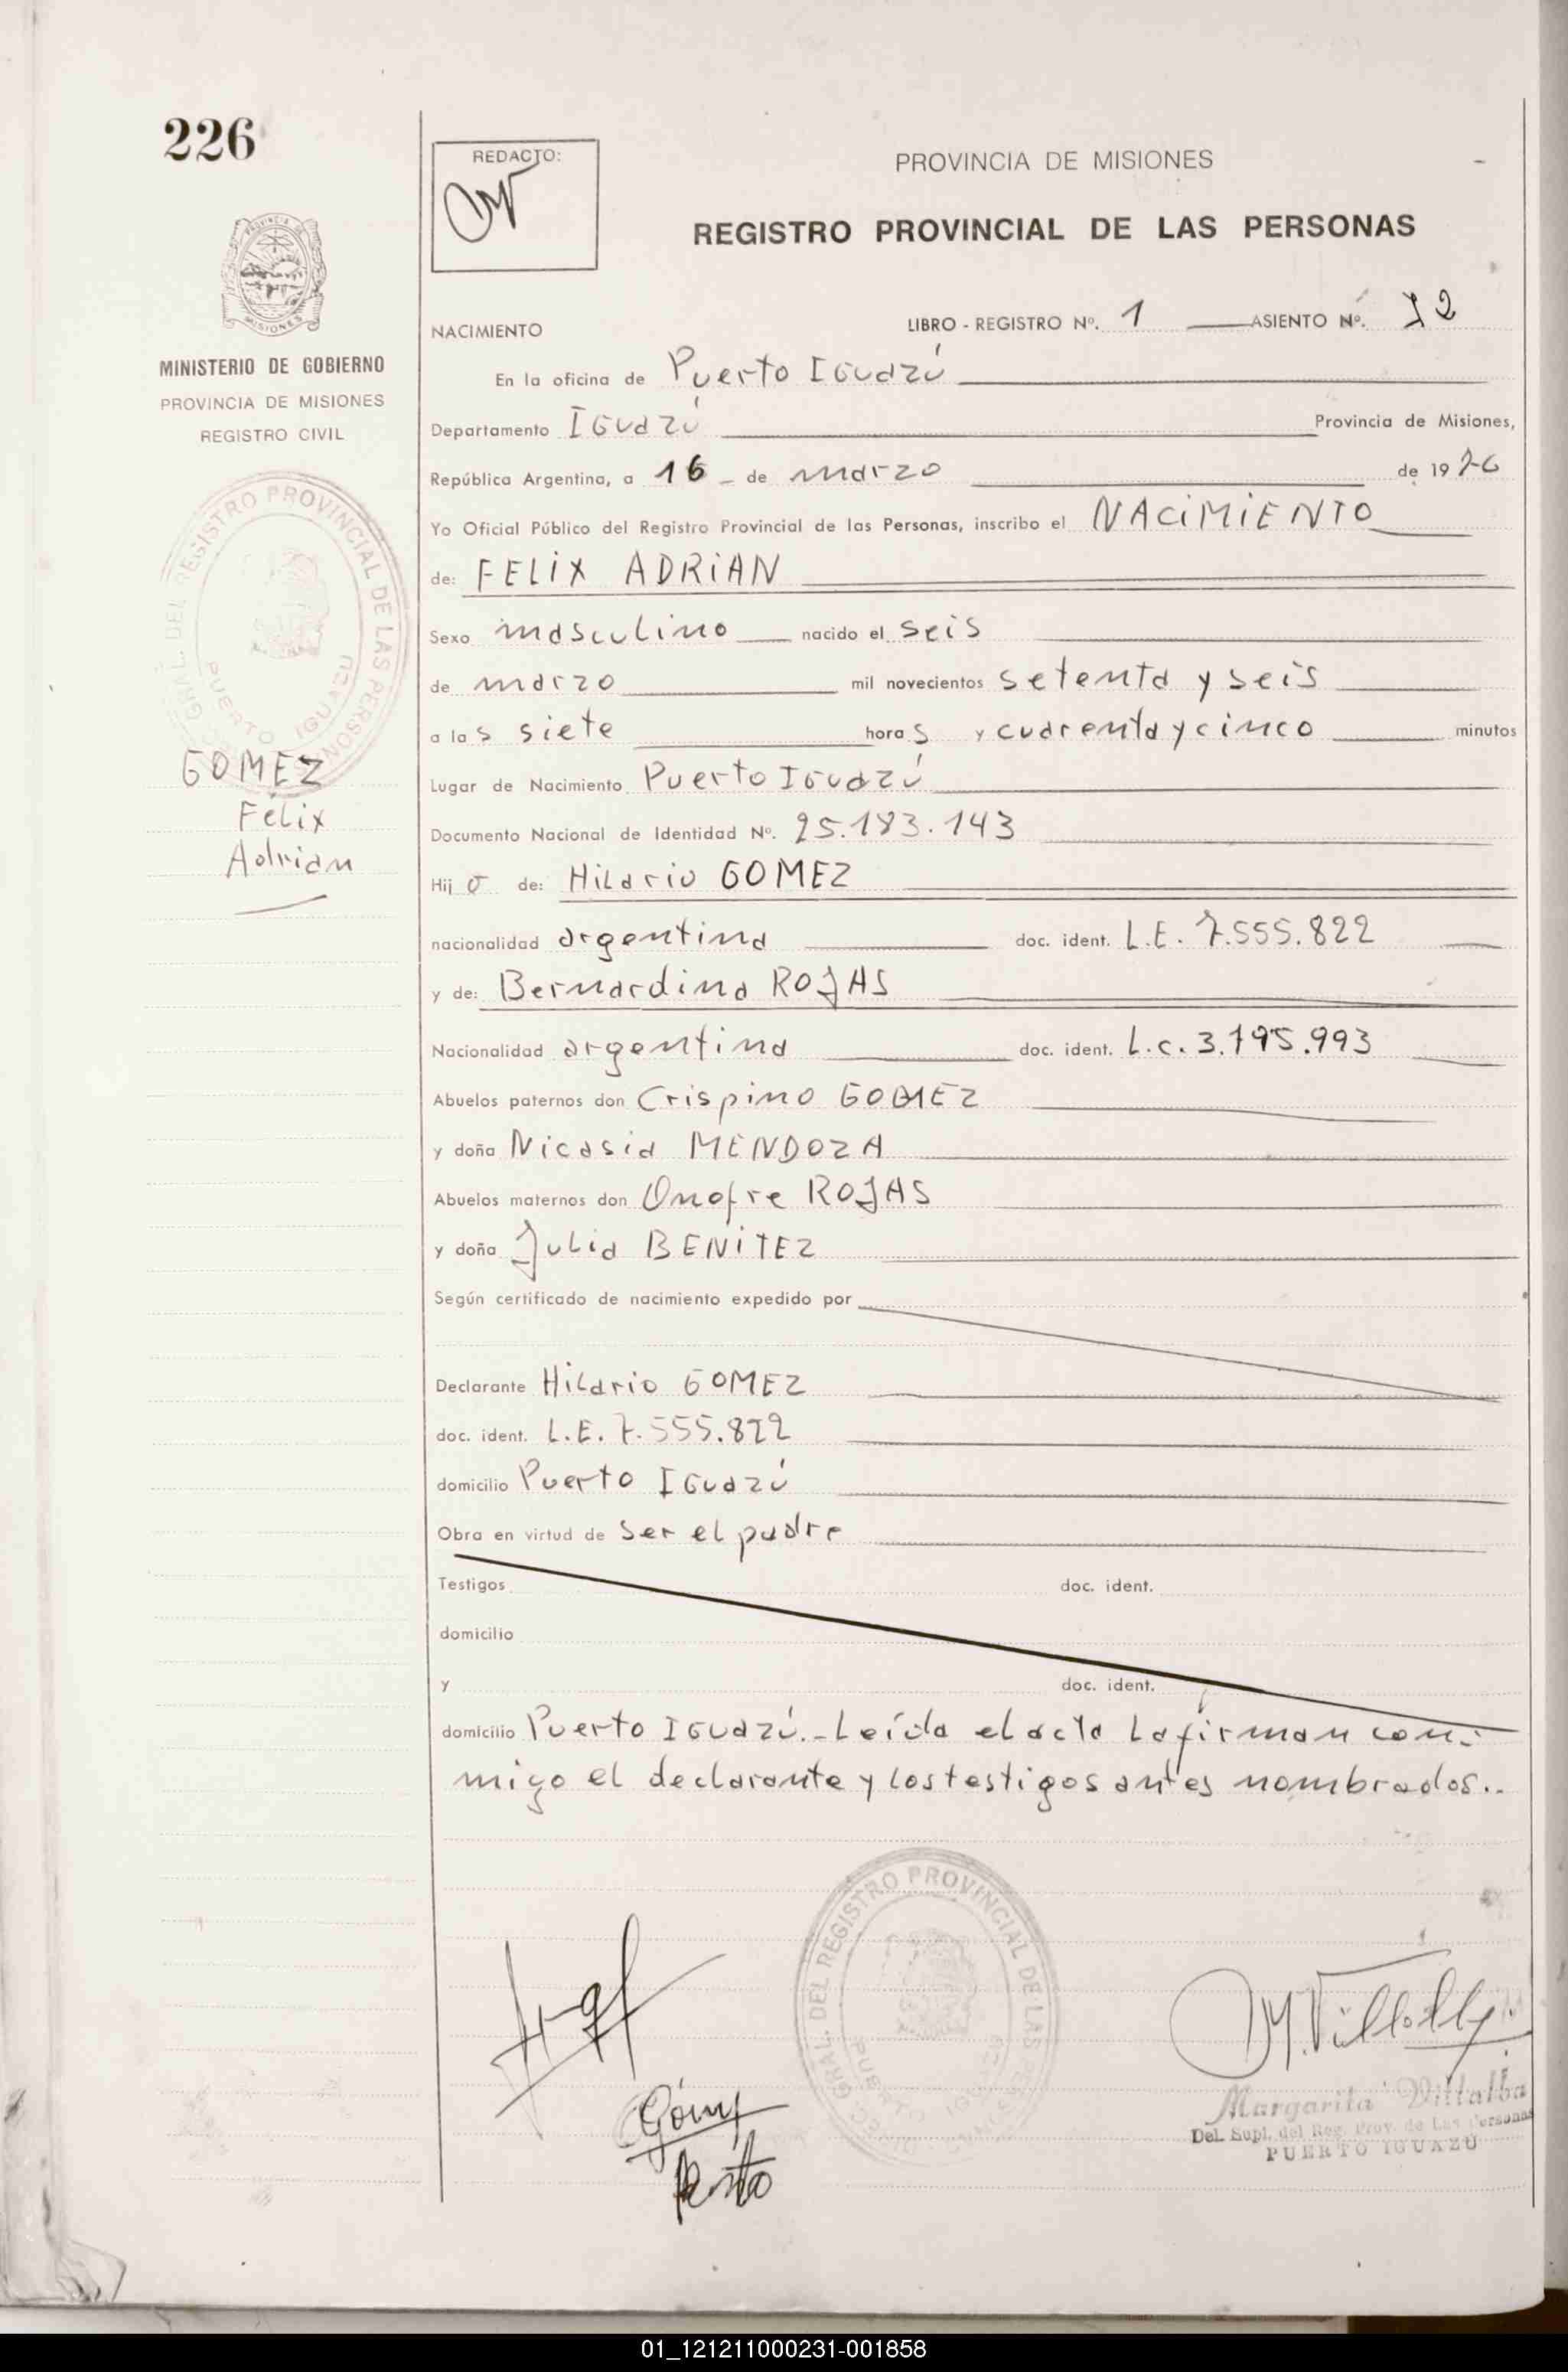 226
REDACTO:
PROVINCIA DE MISIONES
REGISTRO PROVINCIAL DE LAS PERSONAS
PROVINCIA DE
MISIONES
MINISTERIO DE GOBIERNO
PROVINCIA DE MISIONES
REGISTRO CIVIL
GRAL. DEL REGISTRO PROVINCIAL DE LAS PERSONAS
PUERTO IGUAZU
GOMEZ
Félix
Adrian
NACIMIENTO LIBRO - REGISTRO Nº. 1 ASIENTO Nº. 72
En la oficina de Puerto Iguazú
Departamento Iguazú Provincia de Misiones,
República Argentina, a 16 - de marzo de 1976
Yo Oficial Público del Registro Provincial de las Personas, inscribo el NACIMIENTO
de: FELIX ADRIAN
Sexo masculino nacido el seis
de marzo mil novecientos setenta y seis
a las siete horas y cuarenta y cinco minutos
Lugar de Nacimiento Puerto Iguazú
Documento Nacional de Identidad Nº. 25.183.143
Hijo de: Hilario GOMEZ
nacionalidad argentina doc. ident. L.E. 7.555.822
y de: Bernardina ROJAS
Nacionalidad argentina doc. ident. L.C. 3.195.993
Abuelos paternos don Crispino GOMEZ
y doña Nicasia MENDOZA
Abuelos maternos don Onofre ROJAS
y doña Julia BENITEZ
Según certificado de nacimiento expedido por
Declarante Hilario GOMEZ
doc. ident. L.E. 7.555.822
domicilio Puerto Iguazú
Obra en virtud de ser el padre
Testigos doc. ident.
domicilio
y doc. ident.
domicilio Puerto Iguazú.- Leída el acta la firman con-
migo el declarante y los testigos antes nombrados..
GRAL. DEL REGISTRO PROVINCIAL DE LAS PERSONAS
PUERTO IGUAZU
Margarita Villalba
Del. Supl. del Reg. Prov. de Las Personas
PUERTO IGUAZU
01_121211000231-001858